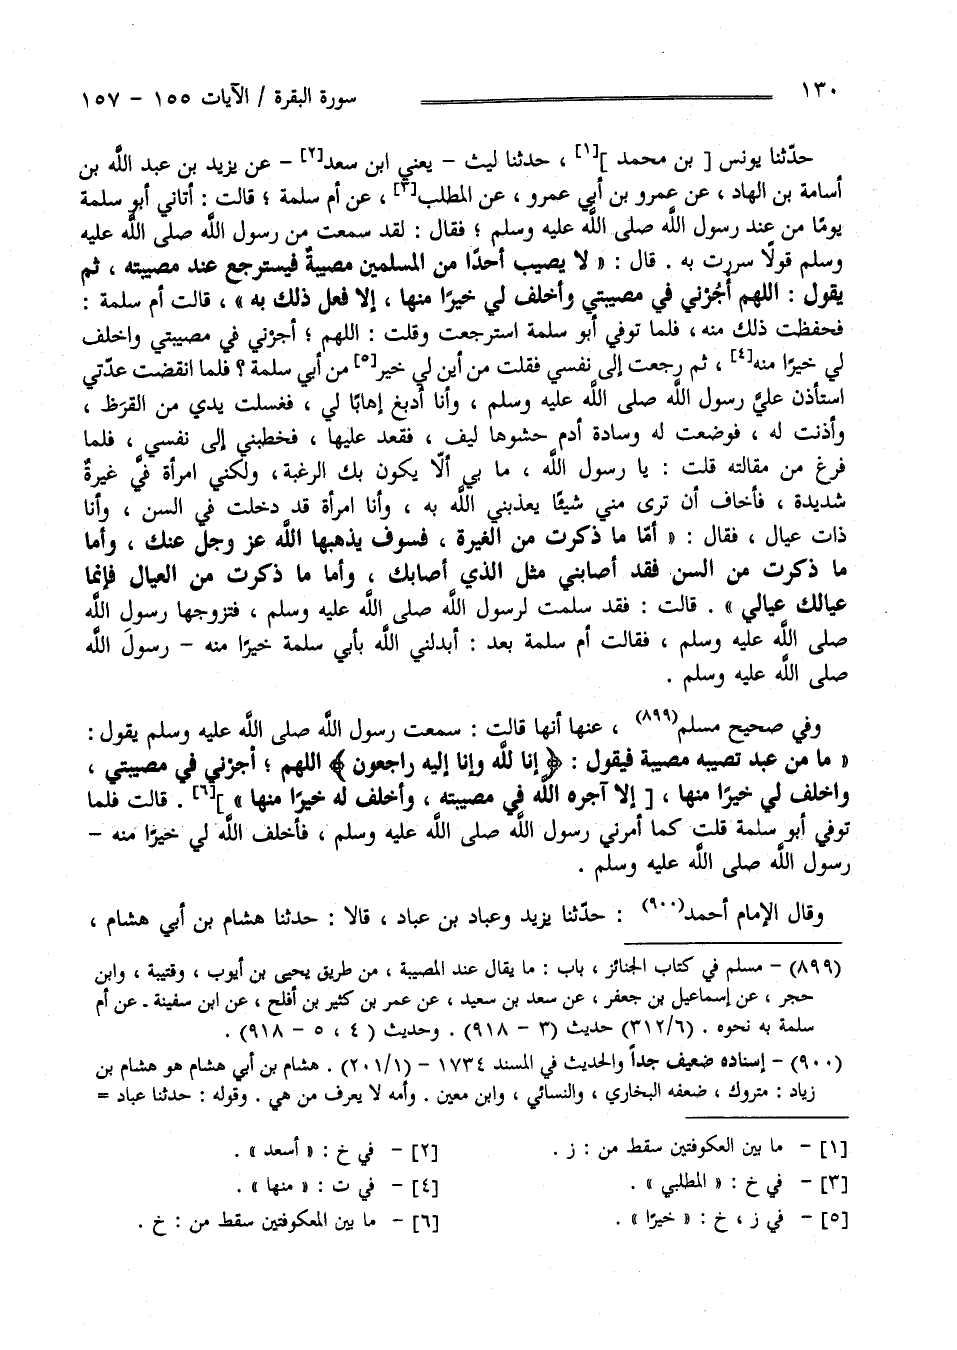 ١٣٠
سورة البقرة / الآيات ١٥٥ – ١٥٧
حدّثنا يونس [ بن محمد ][١] ، حدثنا ليث – يعني ابن سعد[٢] – عن يزيد بن عبد اللَّه بن
أسامة بن الهاد ، عن عمرو بن أبي عمرو ، عن المطلب[٣] ، عن أم سلمة ؛ قالت : أتاني أبو سلمة
يومًا من عند رسول اللَّه صلى اللَّه عليه وسلم ؛ فقال : لقد سمعت من رسول اللَّه صلى اللَّه عليه
وسلم قولًا سررت به . قال : « لا يصيب أحدًا من المسلمين مصيبةٌ فيسترجع عند مصيبته ، ثم
يقول : اللهم أْجُرْني في مصيبتي وأخلف لي خيرًا منها ، إلا فعل ذلك به » ، قالت أم سلمة :
فحفظت ذلك منه ، فلما توفي أبو سلمة استرجعت وقلت : اللهم ؛ أجرْني في مصيبتي واخلف
لي خيرًا منه[٤] ، ثم رجعت إلى نفسي فقلت من أين لي خير[٥] من أبي سلمة ؟ فلما انقضت عدّتي
استأذن عليَّ رسول اللَّه صلى اللَّه عليه وسلم ، وأنا أدبغ إهابًا لي ، فغسلت يدي من القرَظ ،
وأذنت له ، فوضعت له وسادة أدم حشوها ليف ، فقعد عليها ، فخطبني إلى نفسي ، فلما
فرغ من مقالته قلت : يا رسول اللَّه ، ما بي ألّا يكون بك الرغبة، ولكني امرأة فيَّ غيرةٌ
شديدة ، فأخاف أن ترى مني شيئًا يعذبني اللَّه به ، وأنا امرأة قد دخلت في السن ، وأنا
ذات عيال ، فقال : « أمّا ما ذكرت من الغيرة ، فسوف يذهبها اللَّه عز وجل عنك ، وأما
ما ذكرت من السن فقد أصابني مثل الذي أصابك ، وأما ما ذكرت من العيال فإنما
عيالك عيالي » . قالت : فقد سلمت لرسول اللَّه صلى اللَّه عليه وسلم ، فتزوجها رسول اللَّه
صلى اللَّه عليه وسلم ، فقالت أم سلمة بعد : أبدلني اللَّه بأبي سلمة خيرًا منه – رسولَ اللَّه
صلى اللَّه عليه وسلم .
وفي صحيح مسلم(٨٩٩) ، عنها أنها قالت : سمعت رسول اللَّه صلى اللَّه عليه وسلم يقول :
« ما من عبد تصيبه مصيبة فيقول : ﴿ إنا للَّه وإنا إليه راجعون ﴾ اللهم ؛ أجرْني في مصيبتي ،
واخلف لي خيرًا منها ، [ إلا آجره اللَّه في مصيبته ، وأخلف له خيرًا منها » ][٦] . قالت فلما
توفي أبو سلمة قلت كما أمرني رسول اللَّه صلى اللَّه عليه وسلم ، فأخلف اللَّه لي خيرًا منه –
رسول اللَّه صلى اللَّه عليه وسلم .
وقال الإمام أحمد(٩٠٠) : حدّثنا يزيد وعباد بن عباد ، قالا : حدثنا هشام بن أبي هشام ،
(٨٩٩) – مسلم في كتاب الجنائز ، باب : ما يقال عند المصيبة ، من طريق يحيى بن أيوب ، وقتيبة ، وابن
حجر ، عن إسماعيل بن جعفر ، عن سعد بن سعيد ، عن عمر بن كثير بن أفلح ، عن ابن سفينة . عن أم
سلمة به نحوه . (٣١٢/٦) حديث (٣ – ٩١٨) . وحديث ( ٤ ، ٥ – ٩١٨) .
(٩٠٠) – إسناده ضعيف جداً والحديث في المسند ١٧٣٤ – (٢٠١/١) . هشام بن أبي هشام هو هشام بن
زياد : متروك ، ضعفه البخاري ، والنسائي ، وابن معين . وأمه لا يعرف من هي . وقوله : حدثنا عباد =
[١] – ما بين العكوفتين سقط من : ز .
[٢] – في خ : « أسعد » .
[٣] – في خ : « المطلبي » .
[٤] – في ت : « منها » .
[٥] – في ز ، خ : « خيرًا » .
[٦] – ما بين المعكوفتين سقط من : خ .